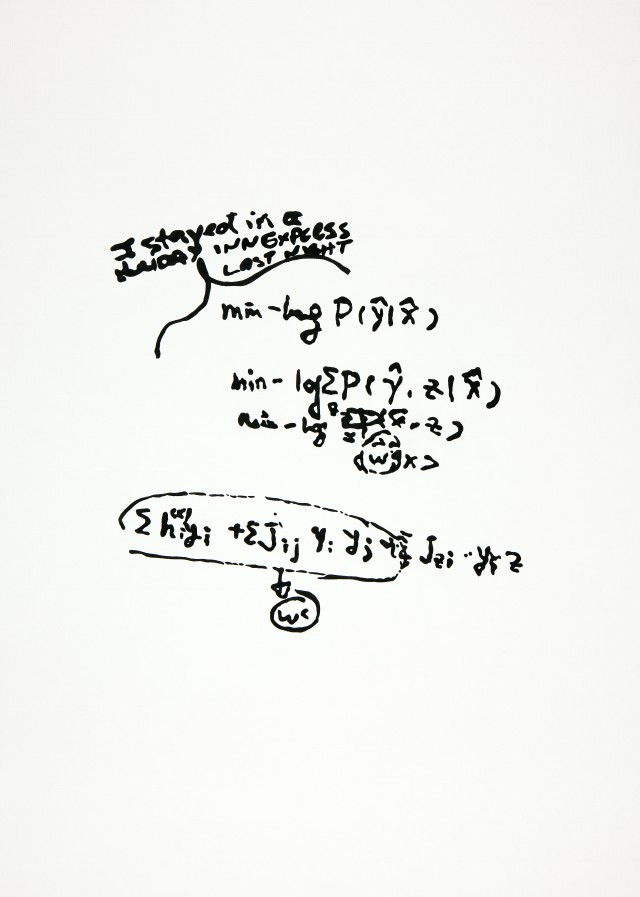 I stayed in a
HOLIDAY INN EXPRESS
LAST NIGHT
min - log P(ŷ|x̂)
min - log Σ P(ŷ, z|x̂)
min - log
Σ hᵢ⁽ˣ⁾yᵢ + Σ Jᵢⱼ yᵢ yⱼ + J_zi yᵢ z